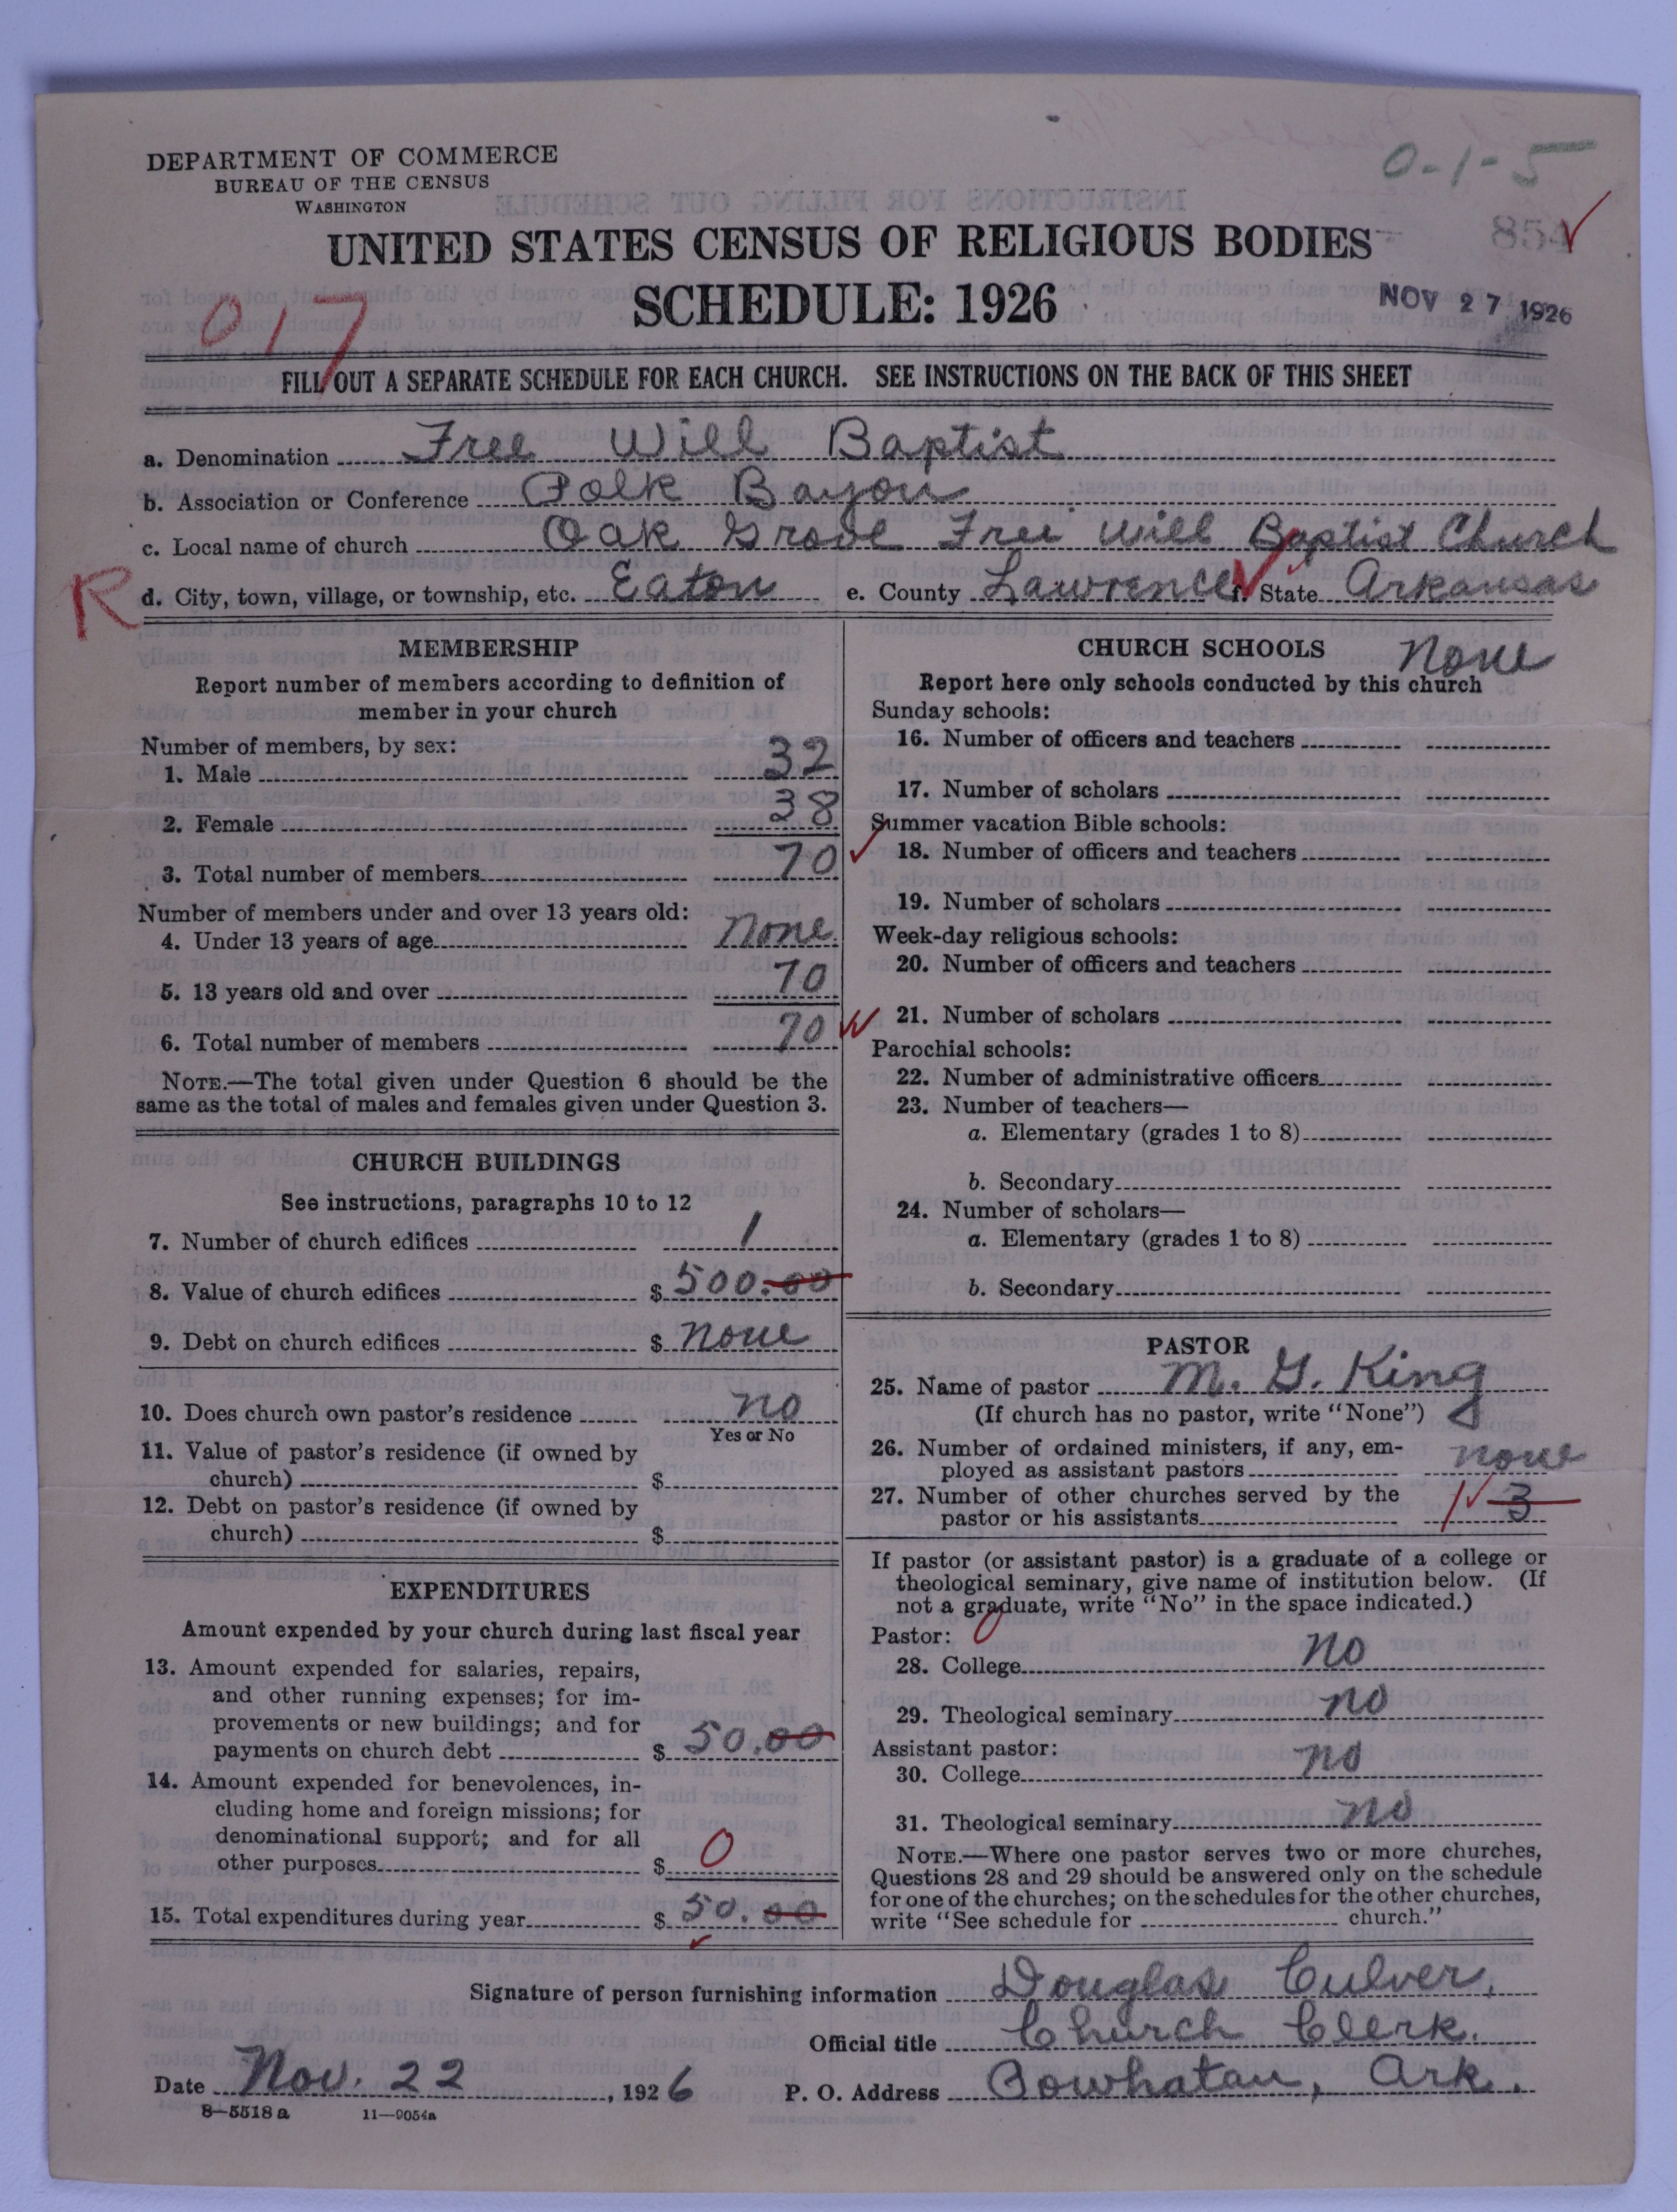 0-1-5
DEPARTMENT OF COMMERCE
BUREAU OF THE CENSUS
WASHINGTON
UNITED STATES CENSUS OF RELIGIOUS BODIES
854
SCHEDULE: 1926
NOV 27 1926
017
FILL OUT A SEPARATE SCHEDULE FOR EACH CHURCH. SEE INSTRUCTIONS ON THE BACK OF THIS SHEET
a. Denomination Free Will Baptist
b. Association or Conference Polk Bayou
c. Local name of church Oak Grove Free Will Baptist Church
R
d. City, town, village, or township, etc. Eaton e. County Lawrence f. State Arkansas
MEMBERSHIP
Report number of members according to definition of
member in your church
Number of members, by sex:
1. Male 32
2. Female 38
3. Total number of members 70
Number of members under and over 13 years old:
4. Under 13 years of age None
5. 13 years old and over 70
6. Total number of members 70
NOTE.—The total given under Question 6 should be the
same as the total of males and females given under Question 3.
CHURCH BUILDINGS
See instructions, paragraphs 10 to 12
7. Number of church edifices 1
8. Value of church edifices $ 500.00
9. Debt on church edifices $ none
10. Does church own pastor's residence no
Yes or No
11. Value of pastor's residence (if owned by
church) $
12. Debt on pastor's residence (if owned by
church) $
EXPENDITURES
Amount expended by your church during last fiscal year
13. Amount expended for salaries, repairs,
and other running expenses; for im-
provements or new buildings; and for
payments on church debt $ 50.00
14. Amount expended for benevolences, in-
cluding home and foreign missions; for
denominational support; and for all
other purposes $ 0
15. Total expenditures during year $ 50.00
CHURCH SCHOOLS None
Report here only schools conducted by this church
Sunday schools:
16. Number of officers and teachers
17. Number of scholars
Summer vacation Bible schools:
18. Number of officers and teachers
19. Number of scholars
Week-day religious schools:
20. Number of officers and teachers
21. Number of scholars
Parochial schools:
22. Number of administrative officers
23. Number of teachers—
a. Elementary (grades 1 to 8)
b. Secondary
24. Number of scholars—
a. Elementary (grades 1 to 8)
b. Secondary
PASTOR
25. Name of pastor M. G. King
(If church has no pastor, write "None")
26. Number of ordained ministers, if any, em-
ployed as assistant pastors none
27. Number of other churches served by the
pastor or his assistants 1 3
If pastor (or assistant pastor) is a graduate of a college or
theological seminary, give name of institution below. (If
not a graduate, write "No" in the space indicated.)
Pastor: 0
28. College no
29. Theological seminary no
Assistant pastor:
30. College no
31. Theological seminary no
NOTE.—Where one pastor serves two or more churches,
Questions 28 and 29 should be answered only on the schedule
for one of the churches; on the schedules for the other churches,
write "See schedule for church."
Signature of person furnishing information Douglas Culver,
Official title Church Clerk.
Date Nov. 22, 1926 P. O. Address Powhatan, Ark.
8—5518 a 11—9054a